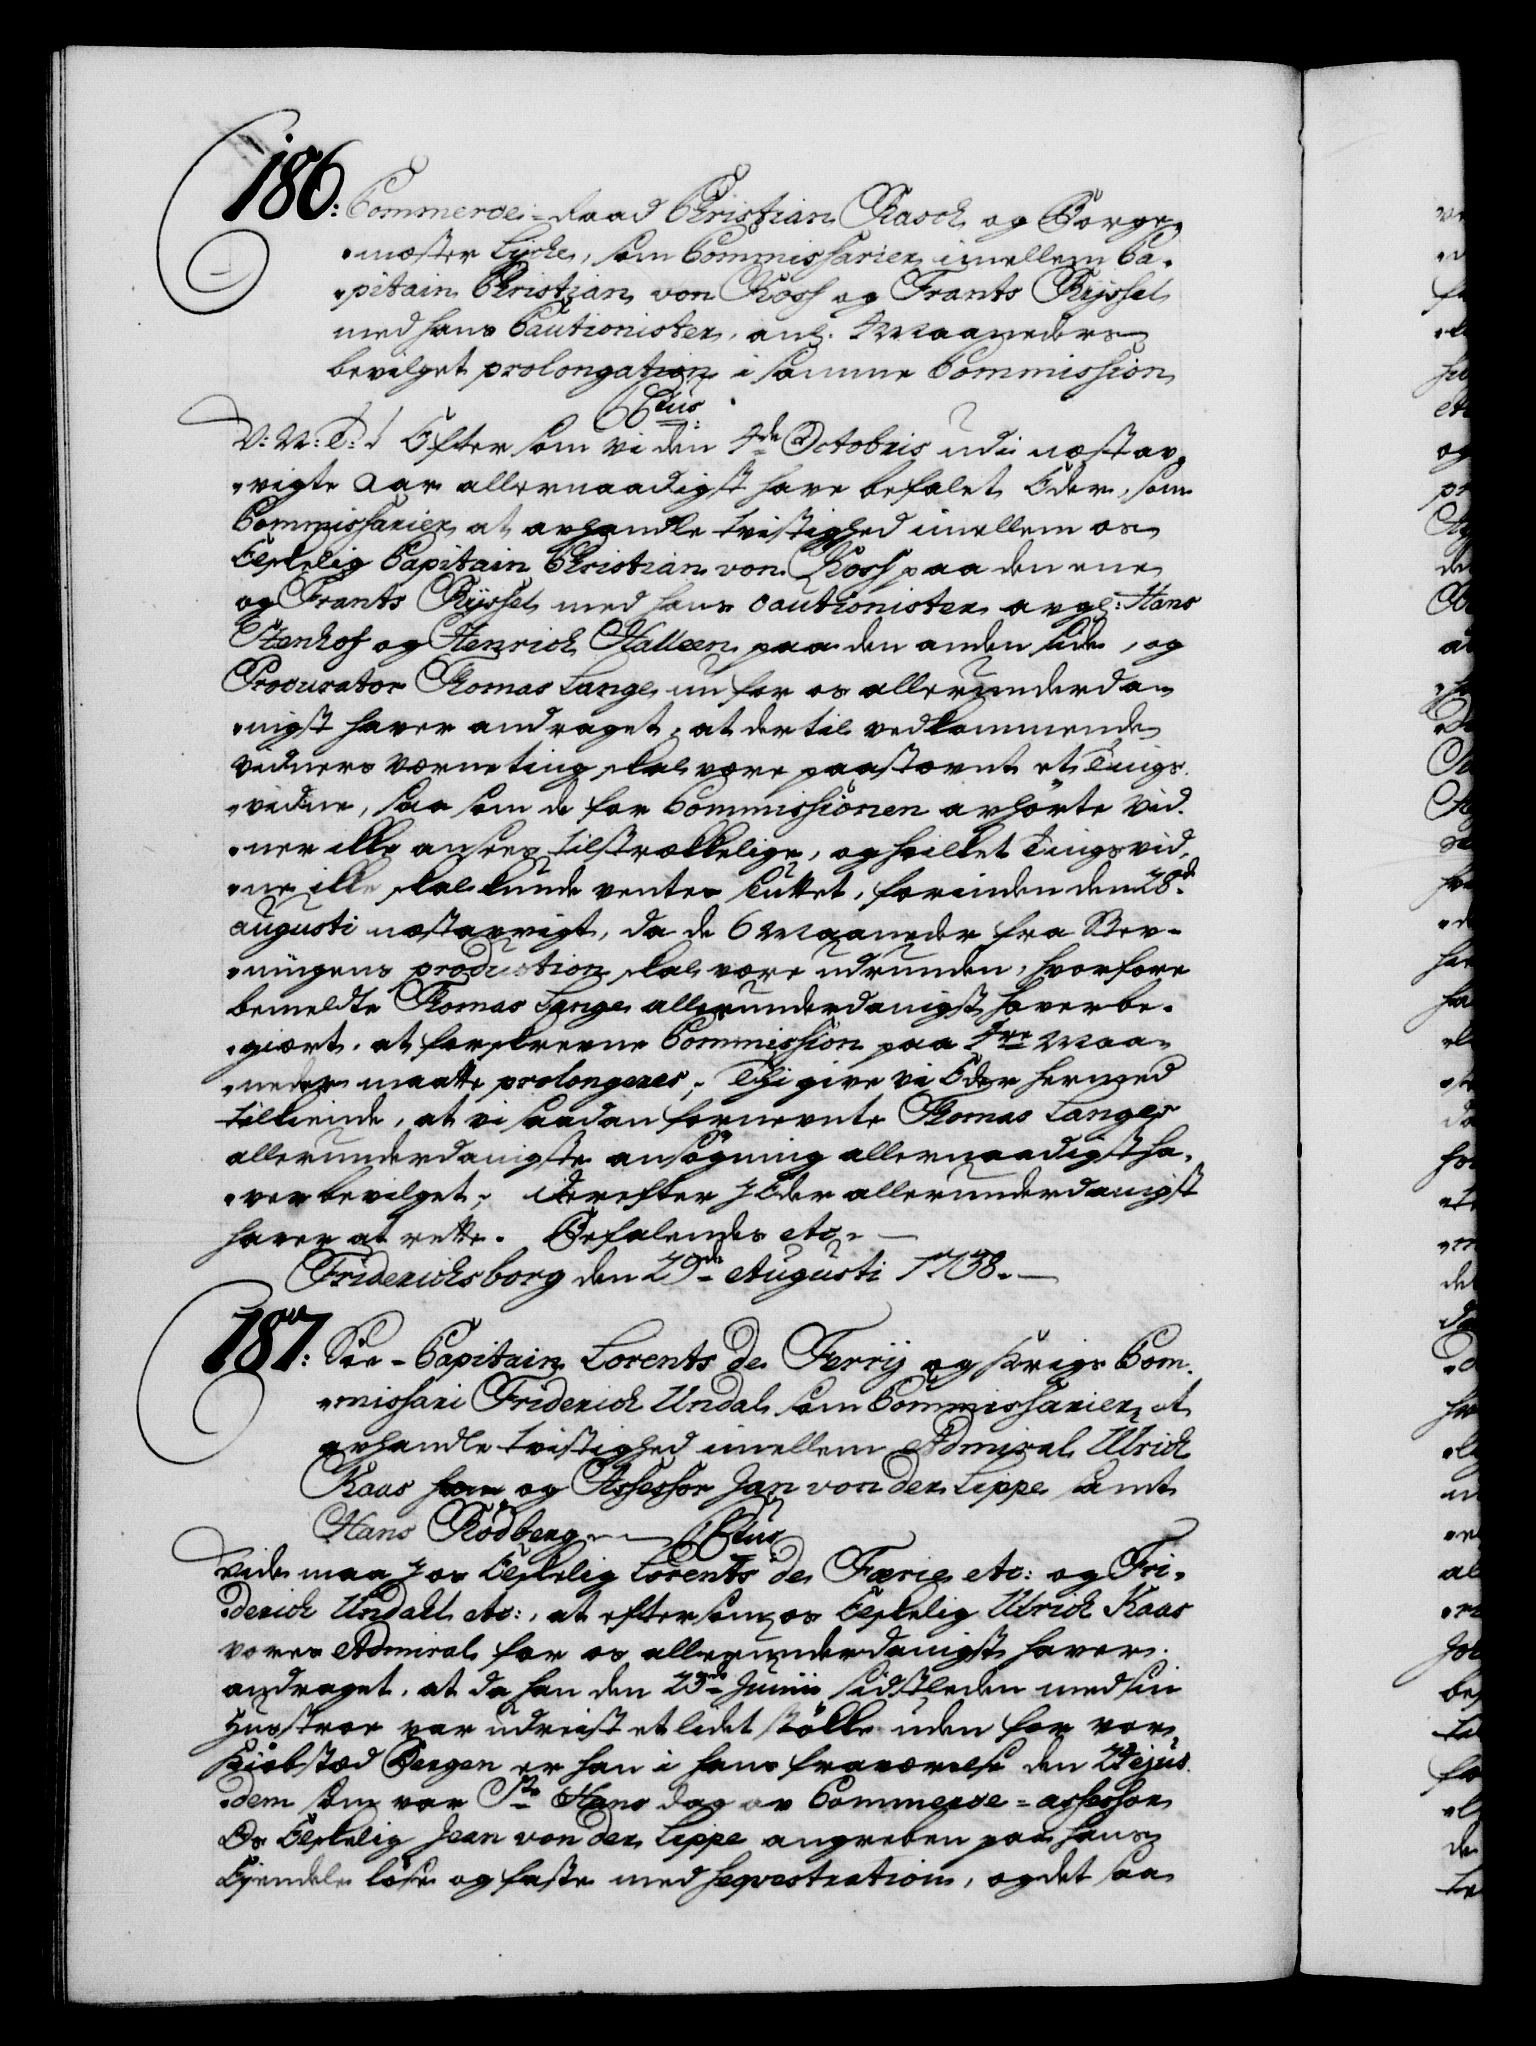 186: Commerce-Raad Christian Rasch og Borge-
mester Lyche, som Commissarier imellem Ca-
pitain Christian von Koss og Frants Ryssel
med hans Cautionister, anl. Maaneders
bevilget prolongation i samme Commission
C6tus.
V: N: T: Eftersom vi den 4de Octobris udi næstav-
vigte Aar allernaadigst have befalet Eder, som
Commissarier at avhandle tvistighed imellem os
Elskelig Capitain Christian von Koss paa den ene
og Frants Ryssel med hans cautionister avgl: Hans
Stenhof og Henrich Halleen paa den anden side, og
Procurator Thomas Lange nu for os allerunderda-
nigst haver andraget, at der til vedkommende
vidners værneting skal være paastævnt et Tings-
vidne, saa som de for Commissionen avhørte vid-
ner ikke ansees tilstrækkelige, og hvilket Tingsvid-
ne ikke skal kunde ventes sluttet, forinden den 28de
augusti næstavvigt, da de 6 Maaneder fra Bev-
ningens production skal være udrunden, hvorfore
bemeldte Thomas Lange allerunderdanigst haver be-
giært, at forskrevne Commission paa Maa-
neder maatte prolongeres; Thi give vi Eder hermed
tilkiende, at vi saadan fornevnte Thomas Langes
allerunderdanigste ansøgning allernaadigst ha-
ver bevilget; Derefter I Eder allerunderdanigst
haver at rette. Befalendes etc.
Friderichsborg den 29de Augusti 1738.
187: See-Capitain Lorents de Ferry og Krigs Com-
missari Friderich Undal som Commissarier at
avhandle tvistighed imellem Admiral Ulrich
Kaas og Assessor Jan von der Lippe samt
Hans Rødberg
Vide maa I os Elskelig Lorents de Færie etc: og Fri-
derich Undahl etc:, at eftersom os Elskelig Ulrich Kaas
vores Admiral for os allerunderdanigst haver
andraget, at da han den 23de Junii sidstleden med sin
Hustroe var udreist et lidet støkke uden for vor
Kiøbstæd Bergen er han i hans fraværelse den 24 ejus-
dem som var Ste Hans dag av Commerce-assessor
Os Elskelig Jean von der Lippe angreben paa hans
Eiendele løse og faste med seqvestration, og det saa